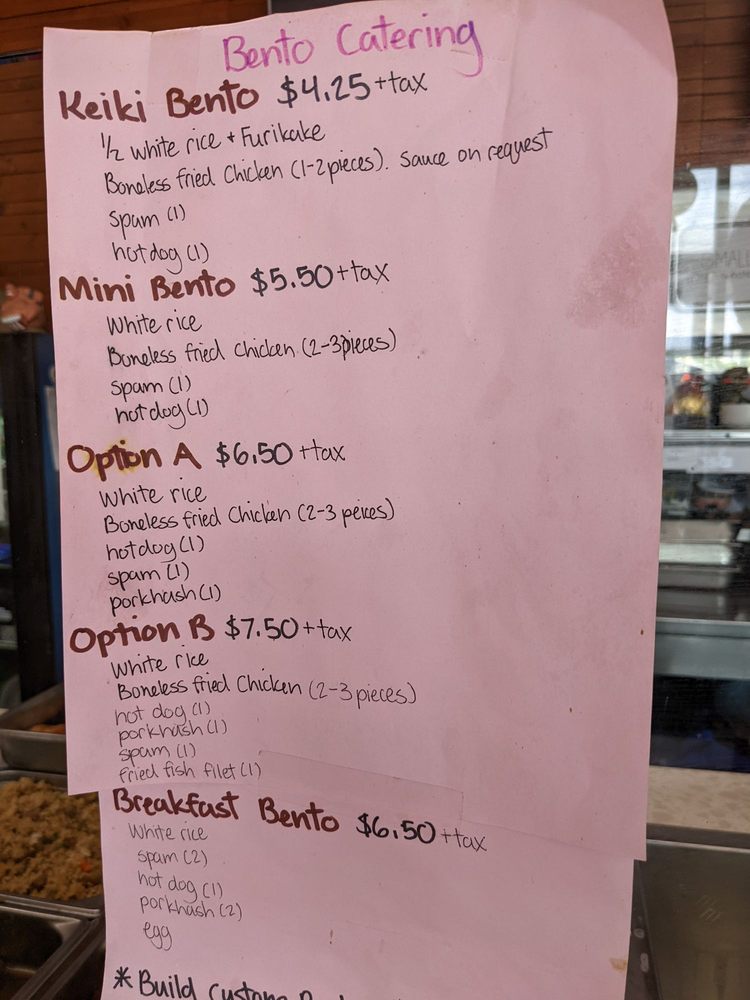 Bento Catering
Keiki Bento $4.25+tax
1/2 white rice + Furikake
Boneless fried Chicken (1-2pieces). Sauce on request
spam (1)
hotdog (1)
Mini Bento $5.50+tax
White rice
Boneless fried Chicken (2-3pieces)
spam (1)
hotdog (1)
Option A $6.50 +tax
White rice
Boneless fried Chicken (2-3 peices)
hotdog (1)
spam (1)
porkhash (1)
Option B $7.50+tax
White rice
Boneless fried Chicken (2-3 pieces)
hot dog (1)
porkhash (1)
spam (1)
fried fish filet (1)
Breakfast Bento $6.50+tax
White rice
spam (2)
hot dog (1)
porkhash (2)
egg
*Build Custom